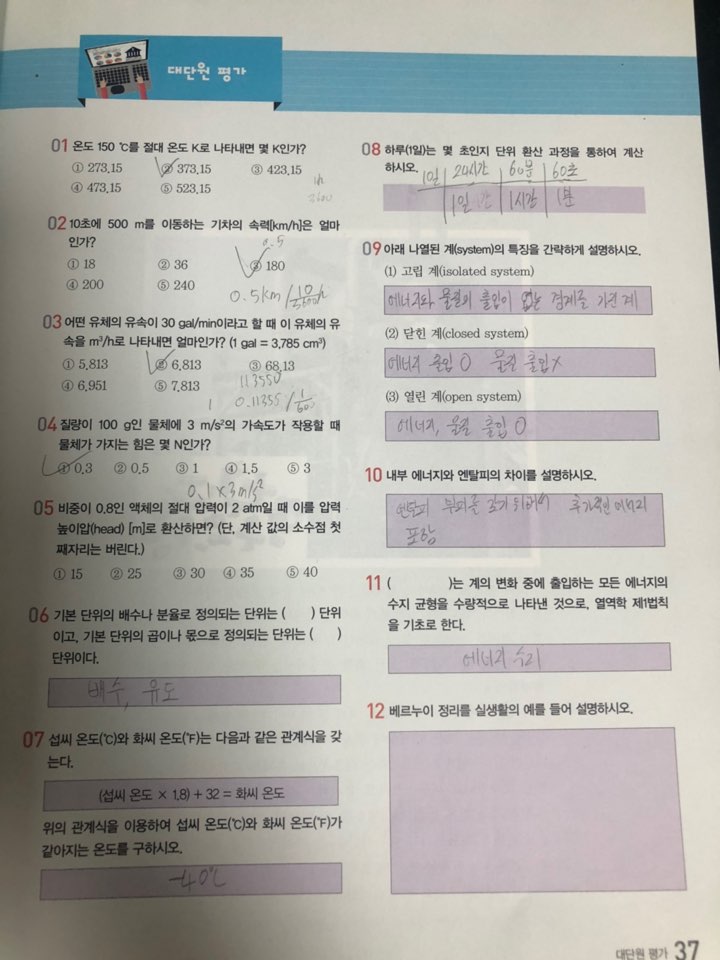 대단원 평가
01 온도 150 ℃를 절대 온도 K로 나타내면 몇 K인가?
① 273.15 ② 373.15 ③ 423.15
④ 473.15 ⑤ 523.15
1h
3600
02 10초에 500 m를 이동하는 기차의 속력[km/h]은 얼마
인가?
0.5
① 18 ② 36 ③ 180
④ 200 ⑤ 240
0.5km / 10/3600 h
03 어떤 유체의 유속이 30 gal/min이라고 할 때 이 유체의 유
속을 m³/h로 나타내면 얼마인가? (1 gal = 3,785 cm³)
① 5.813 ② 6.813 ③ 68.13
④ 6.951 ⑤ 7.813
113550
1 0.11355 / 1/60
04 질량이 100 g인 물체에 3 m/s²의 가속도가 작용할 때
물체가 가지는 힘은 몇 N인가?
① 0.3 ② 0.5 ③ 1 ④ 1.5 ⑤ 3
0.1 x 3m/s²
05 비중이 0.8인 액체의 절대 압력이 2 atm일 때 이를 압력
높이압(head) [m]로 환산하면? (단, 계산 값의 소수점 첫
째자리는 버린다.)
① 15 ② 25 ③ 30 ④ 35 ⑤ 40
06 기본 단위의 배수나 분율로 정의되는 단위는 ( ) 단위
이고, 기본 단위의 곱이나 몫으로 정의되는 단위는 ( )
단위이다.
배수, 유도
07 섭씨 온도(℃)와 화씨 온도(℉)는 다음과 같은 관계식을 갖
는다.
(섭씨 온도 × 1.8) + 32 = 화씨 온도
위의 관계식을 이용하여 섭씨 온도(℃)와 화씨 온도(℉)가
같아지는 온도를 구하시오.
-40℃
08 하루(1일)는 몇 초인지 단위 환산 과정을 통하여 계산
하시오.
1일 24시간 60분 60초
1일 1시간 1분
09 아래 나열된 계(system)의 특징을 간략하게 설명하시오.
(1) 고립 계(isolated system)
에너지와 물질의 출입이 없는 경계를 가진 계
(2) 닫힌 계(closed system)
에너지 출입 O 물질 출입 X
(3) 열린 계(open system)
에너지, 물질 출입 O
10 내부 에너지와 엔탈피의 차이를 설명하시오.
엔탈피 부피를 갖기 위하여 추가적인 에너지
포함
11 ( )는 계의 변화 중에 출입하는 모든 에너지의
수지 균형을 수량적으로 나타낸 것으로, 열역학 제1법칙
을 기초로 한다.
에너지 수지
12 베르누이 정리를 실생활의 예를 들어 설명하시오.
대단원 평가 37